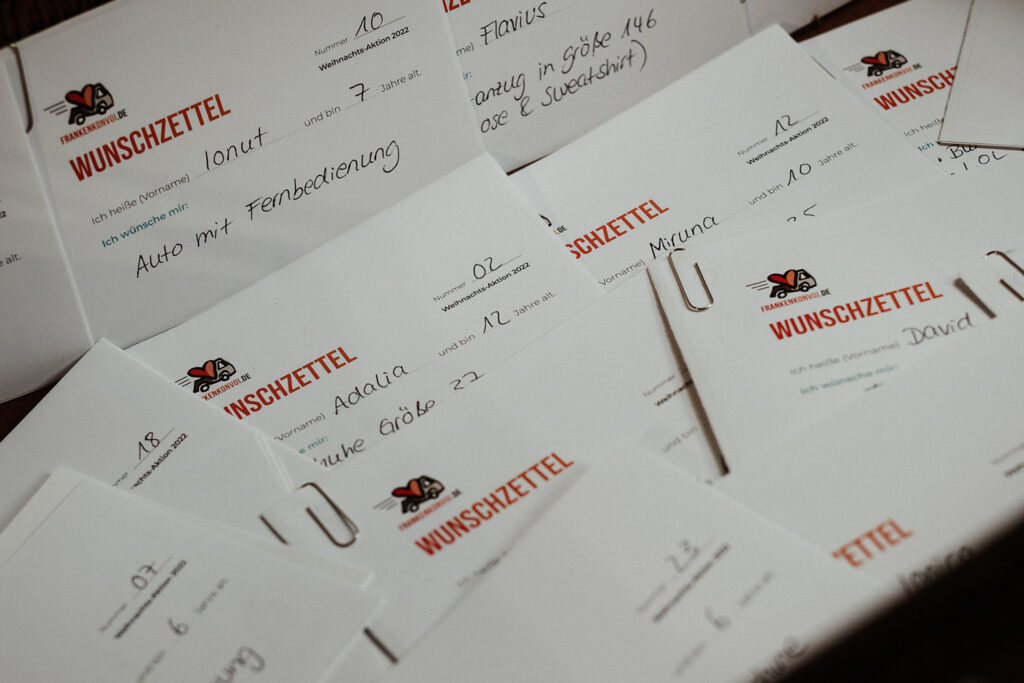 Nummer 10
Weihnachts-Aktion 2022
FRANKENKONVOI.DE
WUNSCHZETTEL
Ich heiße (Vorname) Ionut und bin 7 Jahre alt.
Ich wünsche mir:
Auto mit Fernbedienung
Flavius
anzug in größe 146
ose & sweatshirt)
Nummer 12
Weihnachts-Aktion 2022
SCHZETTEL
Vorname) Miruna und bin 10 Jahre alt.
WUNSCHZ
Ich heiße
Ich
Nummer 02
Weihnachts-Aktion 2022
KENKONVOI.DE
NSCHZETTEL
Vorname) Adalia und bin 12 Jahre alt.
mir:
huhe Größe
FRANKENKONVOI.DE
WUNSCHZETTEL
Ich heiße (Vorname) David
Ich wünsche mir:
18
chts-Aktion 2022
FRANKENKONVOI.DE
WUNSCHZETTEL
Nummer 07
Weihnachts-Aktion 2022
6 Jahre alt.
Nummer 23
Weihnachts-Aktion 2022
6 Jahre alt.
ETTEL